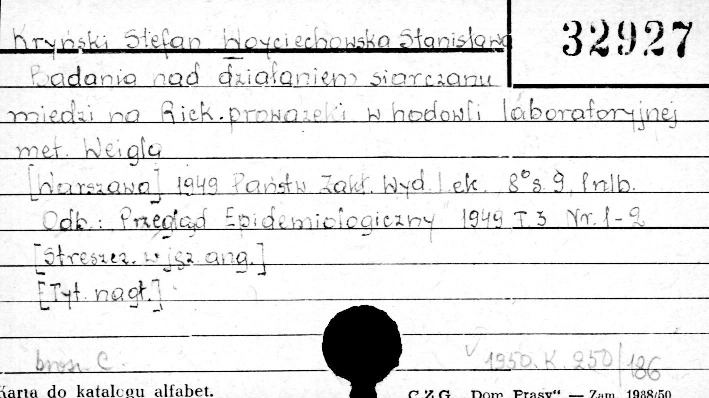 32927
Kryński Stefan Woyciechowska Stanisława
Badania nad działaniem siarczanu
miedzi na Rick. prowazeki w hodowli laboratoryjnej
met. Weigla
[Warszawa] 1949 Państw. Zakł. Wyd. Lek. 8° s. 9, 1 nlb.
Odb.: Przegląd Epidemiologiczny 1949 T. 3 Nr. 1-2
[Streszcz. w jęz. ang.]
[Tyt. nagł.]
brosz. C.
1950. K. 250/186
Karta do katalogu alfabet.
C.Z.G. „Dom Prasy“ — Zam. 1938/50